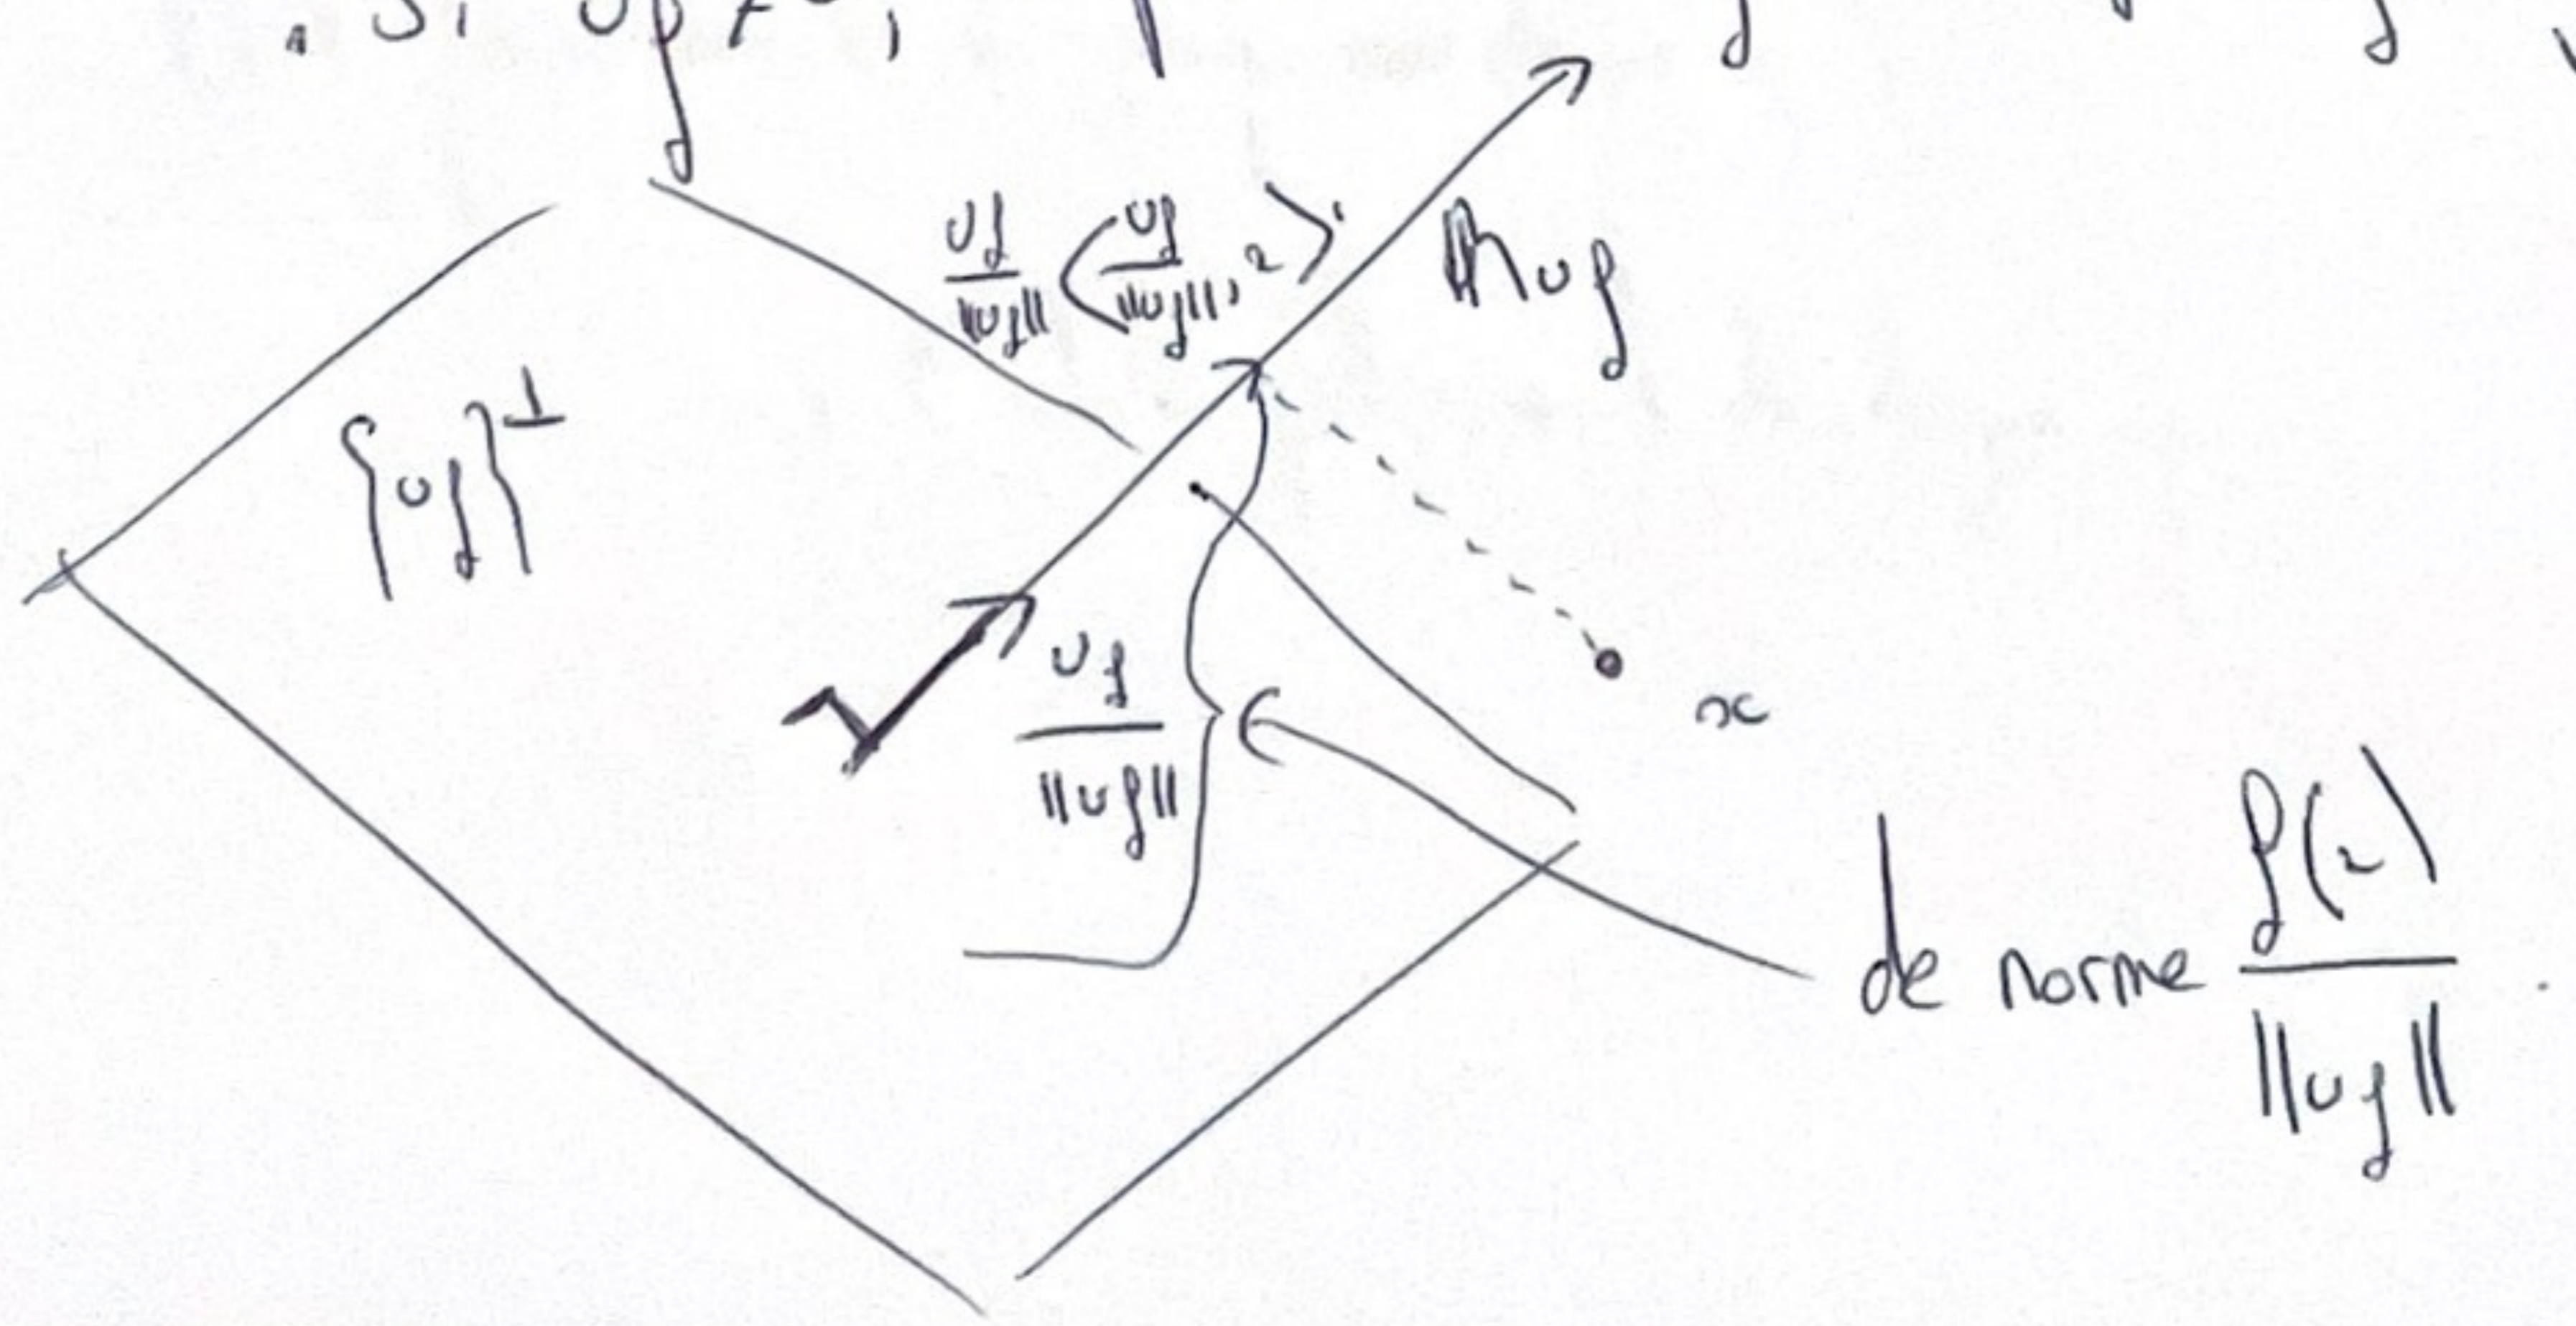 . Si u_f ≠ 0,
u_f/||u_f|| ⟨u_f/||u_f||, x⟩.
ℝu_f
{u_f}^⊥
u_f/||u_f||
x
de norme f(x)/||u_f|| .